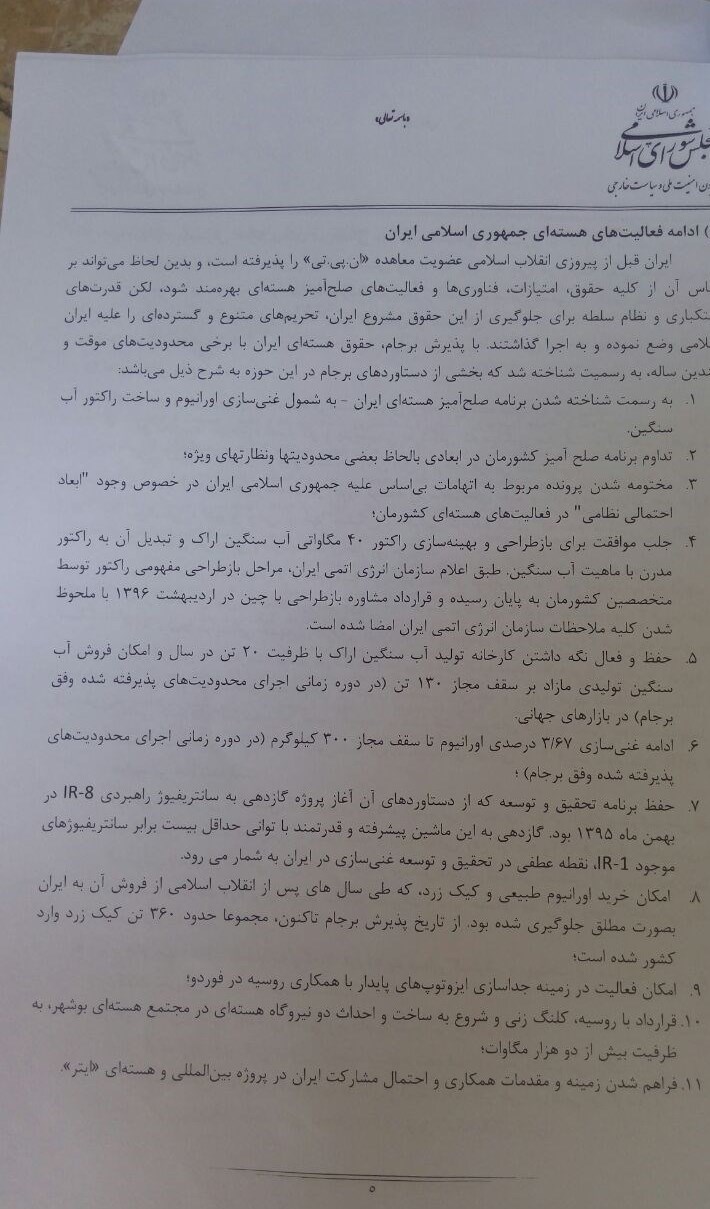 «باسمه تعالی»
جمهوری اسلامی ایران
مجلس شورای اسلامی
امنیت ملی و سیاست خارجی
) ادامه فعالیت‌های هسته‌ای جمهوری اسلامی ایران
ایران قبل از پیروزی انقلاب اسلامی عضویت معاهده «ان.پی.تی» را پذیرفته است، و بدین لحاظ می‌تواند بر
آن از کلیه حقوق، امتیازات، فناوری‌ها و فعالیت‌های صلح‌آمیز هسته‌ای بهره‌مند شود، لکن قدرت‌های
و نظام سلطه برای جلوگیری از این حقوق مشروع ایران، تحریم‌های متنوع و گسترده‌ای را علیه ایران
وضع نموده و به اجرا گذاشتند. با پذیرش برجام، حقوق هسته‌ای ایران با برخی محدودیت‌های موقت و
ساله، به رسمیت شناخته شد که بخشی از دستاوردهای برجام در این حوزه به شرح ذیل می‌باشد:
۱. به رسمت شناخته شدن برنامه صلح‌آمیز هسته‌ای ایران - به شمول غنی‌سازی اورانیوم و ساخت راکتور آب
سنگین.
۲. تداوم برنامه صلح آمیز کشورمان در ابعادی بالحاظ بعضی محدودیتها ونظارتهای ویژه؛
۳. مختومه شدن پرونده مربوط به اتهامات بی‌اساس علیه جمهوری اسلامی ایران در خصوص وجود "ابعاد
احتمالی نظامی" در فعالیت‌های هسته‌ای کشورمان؛
۴. جلب موافقت برای بازطراحی و بهینه‌سازی راکتور ۴۰ مگاواتی آب سنگین اراک و تبدیل آن به راکتور
مدرن با ماهیت آب سنگین. طبق اعلام سازمان انرژی اتمی ایران، مراحل بازطراحی مفهومی راکتور توسط
متخصصین کشورمان به پایان رسیده و قرارداد مشاوره بازطراحی با چین در اردیبهشت ۱۳۹۶ با ملحوظ
شدن کلیه ملاحظات سازمان انرژی اتمی ایران امضا شده است.
۵. حفظ و فعال نگه داشتن کارخانه تولید آب سنگین اراک با ظرفیت ۲۰ تن در سال و امکان فروش آب
سنگین تولیدی مازاد بر سقف مجاز ۱۳۰ تن (در دوره زمانی اجرای محدودیت‌های پذیرفته شده وفق
برجام) در بازارهای جهانی.
۶. ادامه غنی‌سازی ۳/۶۷ درصدی اورانیوم تا سقف مجاز ۳۰۰ کیلوگرم (در دوره زمانی اجرای محدودیت‌های
پذیرفته شده وفق برجام) ؛
۷. حفظ برنامه تحقیق و توسعه که از دستاوردهای آن آغاز پروژه گازدهی به سانتریفیوژ راهبردی IR-8 در
بهمن ماه ۱۳۹۵ بود. گازدهی به این ماشین پیشرفته و قدرتمند با توانی حداقل بیست برابر سانتریفیوژهای
موجود IR-1، نقطه عطفی در تحقیق و توسعه غنی‌سازی در ایران به شمار می رود.
۸. امکان خرید اورانیوم طبیعی و کیک زرد، که طی سال های پس از انقلاب اسلامی از فروش آن به ایران
بصورت مطلق جلوگیری شده بود. از تاریخ پذیرش برجام تاکنون، مجموعا حدود ۳۶۰ تن کیک زرد وارد
کشور شده است؛
۹. امکان فعالیت در زمینه جداسازی ایزوتوپ‌های پایدار با همکاری روسیه در فوردو؛
۱۰. قرارداد با روسیه، کلنگ زنی و شروع به ساخت و احداث دو نیروگاه هسته‌ای در مجتمع هسته‌ای بوشهر، به
ظرفیت بیش از دو هزار مگاوات؛
۱۱. فراهم شدن زمینه و مقدمات همکاری و احتمال مشارکت ایران در پروژه بین‌المللی و هسته‌ای «ایتر».
۵